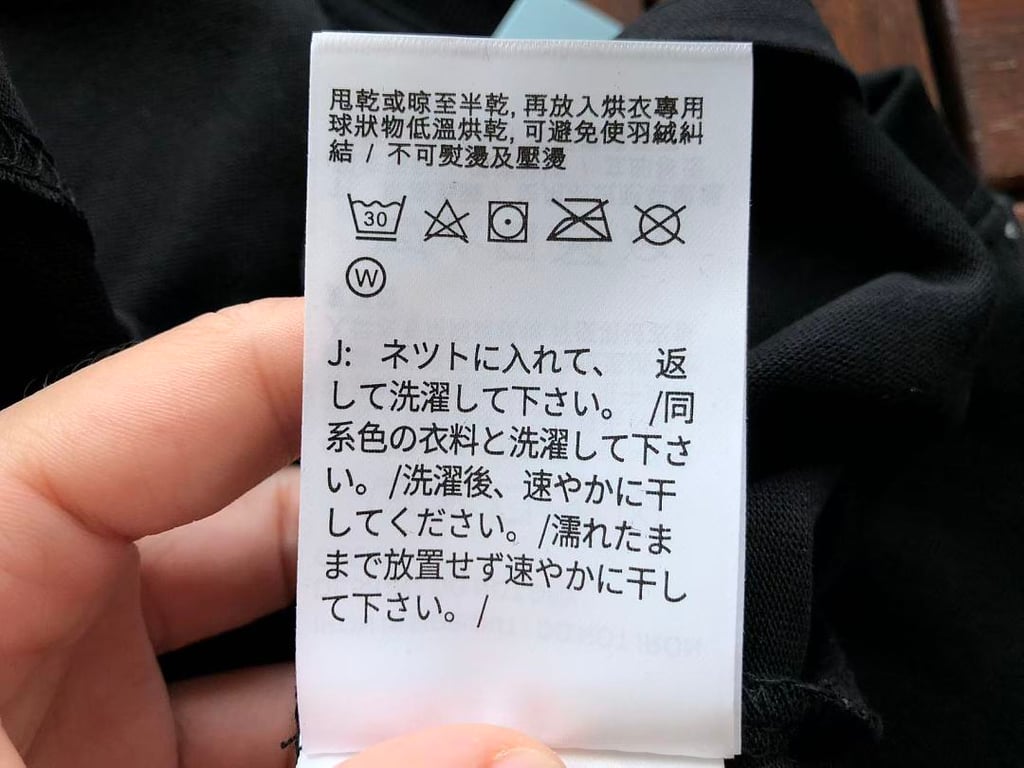 甩乾或晾至半乾, 再放入烘衣專用
球狀物低溫烘乾, 可避免使羽絨糾
結 / 不可熨燙及壓燙
30
W
J: ネツトに入れて、 返
して洗濯して下さい。 /同
系色の衣料と洗濯して下さ
い。/洗濯後、速やかに干
してください。/濡れたま
まで放置せず速やかに干し
て下さい。/